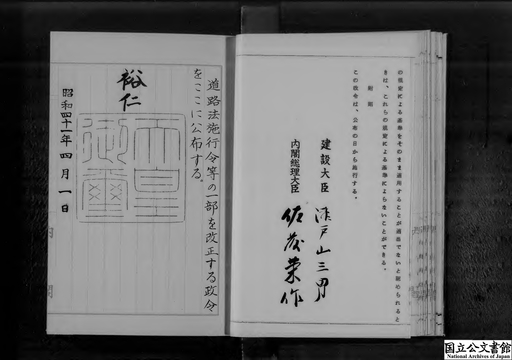 の規定による基準をそのまま適用することが適当でないと認められると
きは、これらの規定による基準によらないことができる。
附則
この政令は、公布の日から施行する。
建設大臣 瀬戸山三男
内閣総理大臣 佐藤栄作
道路法施行令等の一部を改正する政令
をここに公布する。
裕仁
天皇御璽
昭和四十一年四月一日
国立公文書館
National Archives of Japan